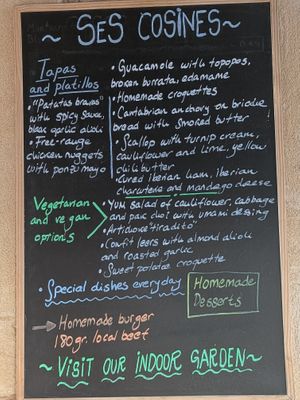 ~ SES COSINES ~
Tapas
and platillos
• "Patatas bravas"
with spicy sauce,
black garlic alioli
• Free-range
chicken nuggets
with ponzu mayo
• Guacamole with topopos,
broken burrata, edamame
• Homemade croquettes
• Cantabrian anchovy on brioche
bread with smoked butter
• Scallop with turnip cream,
cauliflower and lime, yellow
chili butter
• Cured iberian ham, iberian
charcuterie and mandego cheese
Vegetarian
and vegan
options
• Yum salad of cauliflower, cabbage
and pak choi with umami dessing
• Artichoke "tiradito"
• Confit leers with almond alioli
and roasted garlic
• Sweet potatoe croquette
• Special dishes everyday
Homemade
Desserts
→ Homemade burger
180gr. local beef
~ VISIT OUR INDOOR GARDEN ~